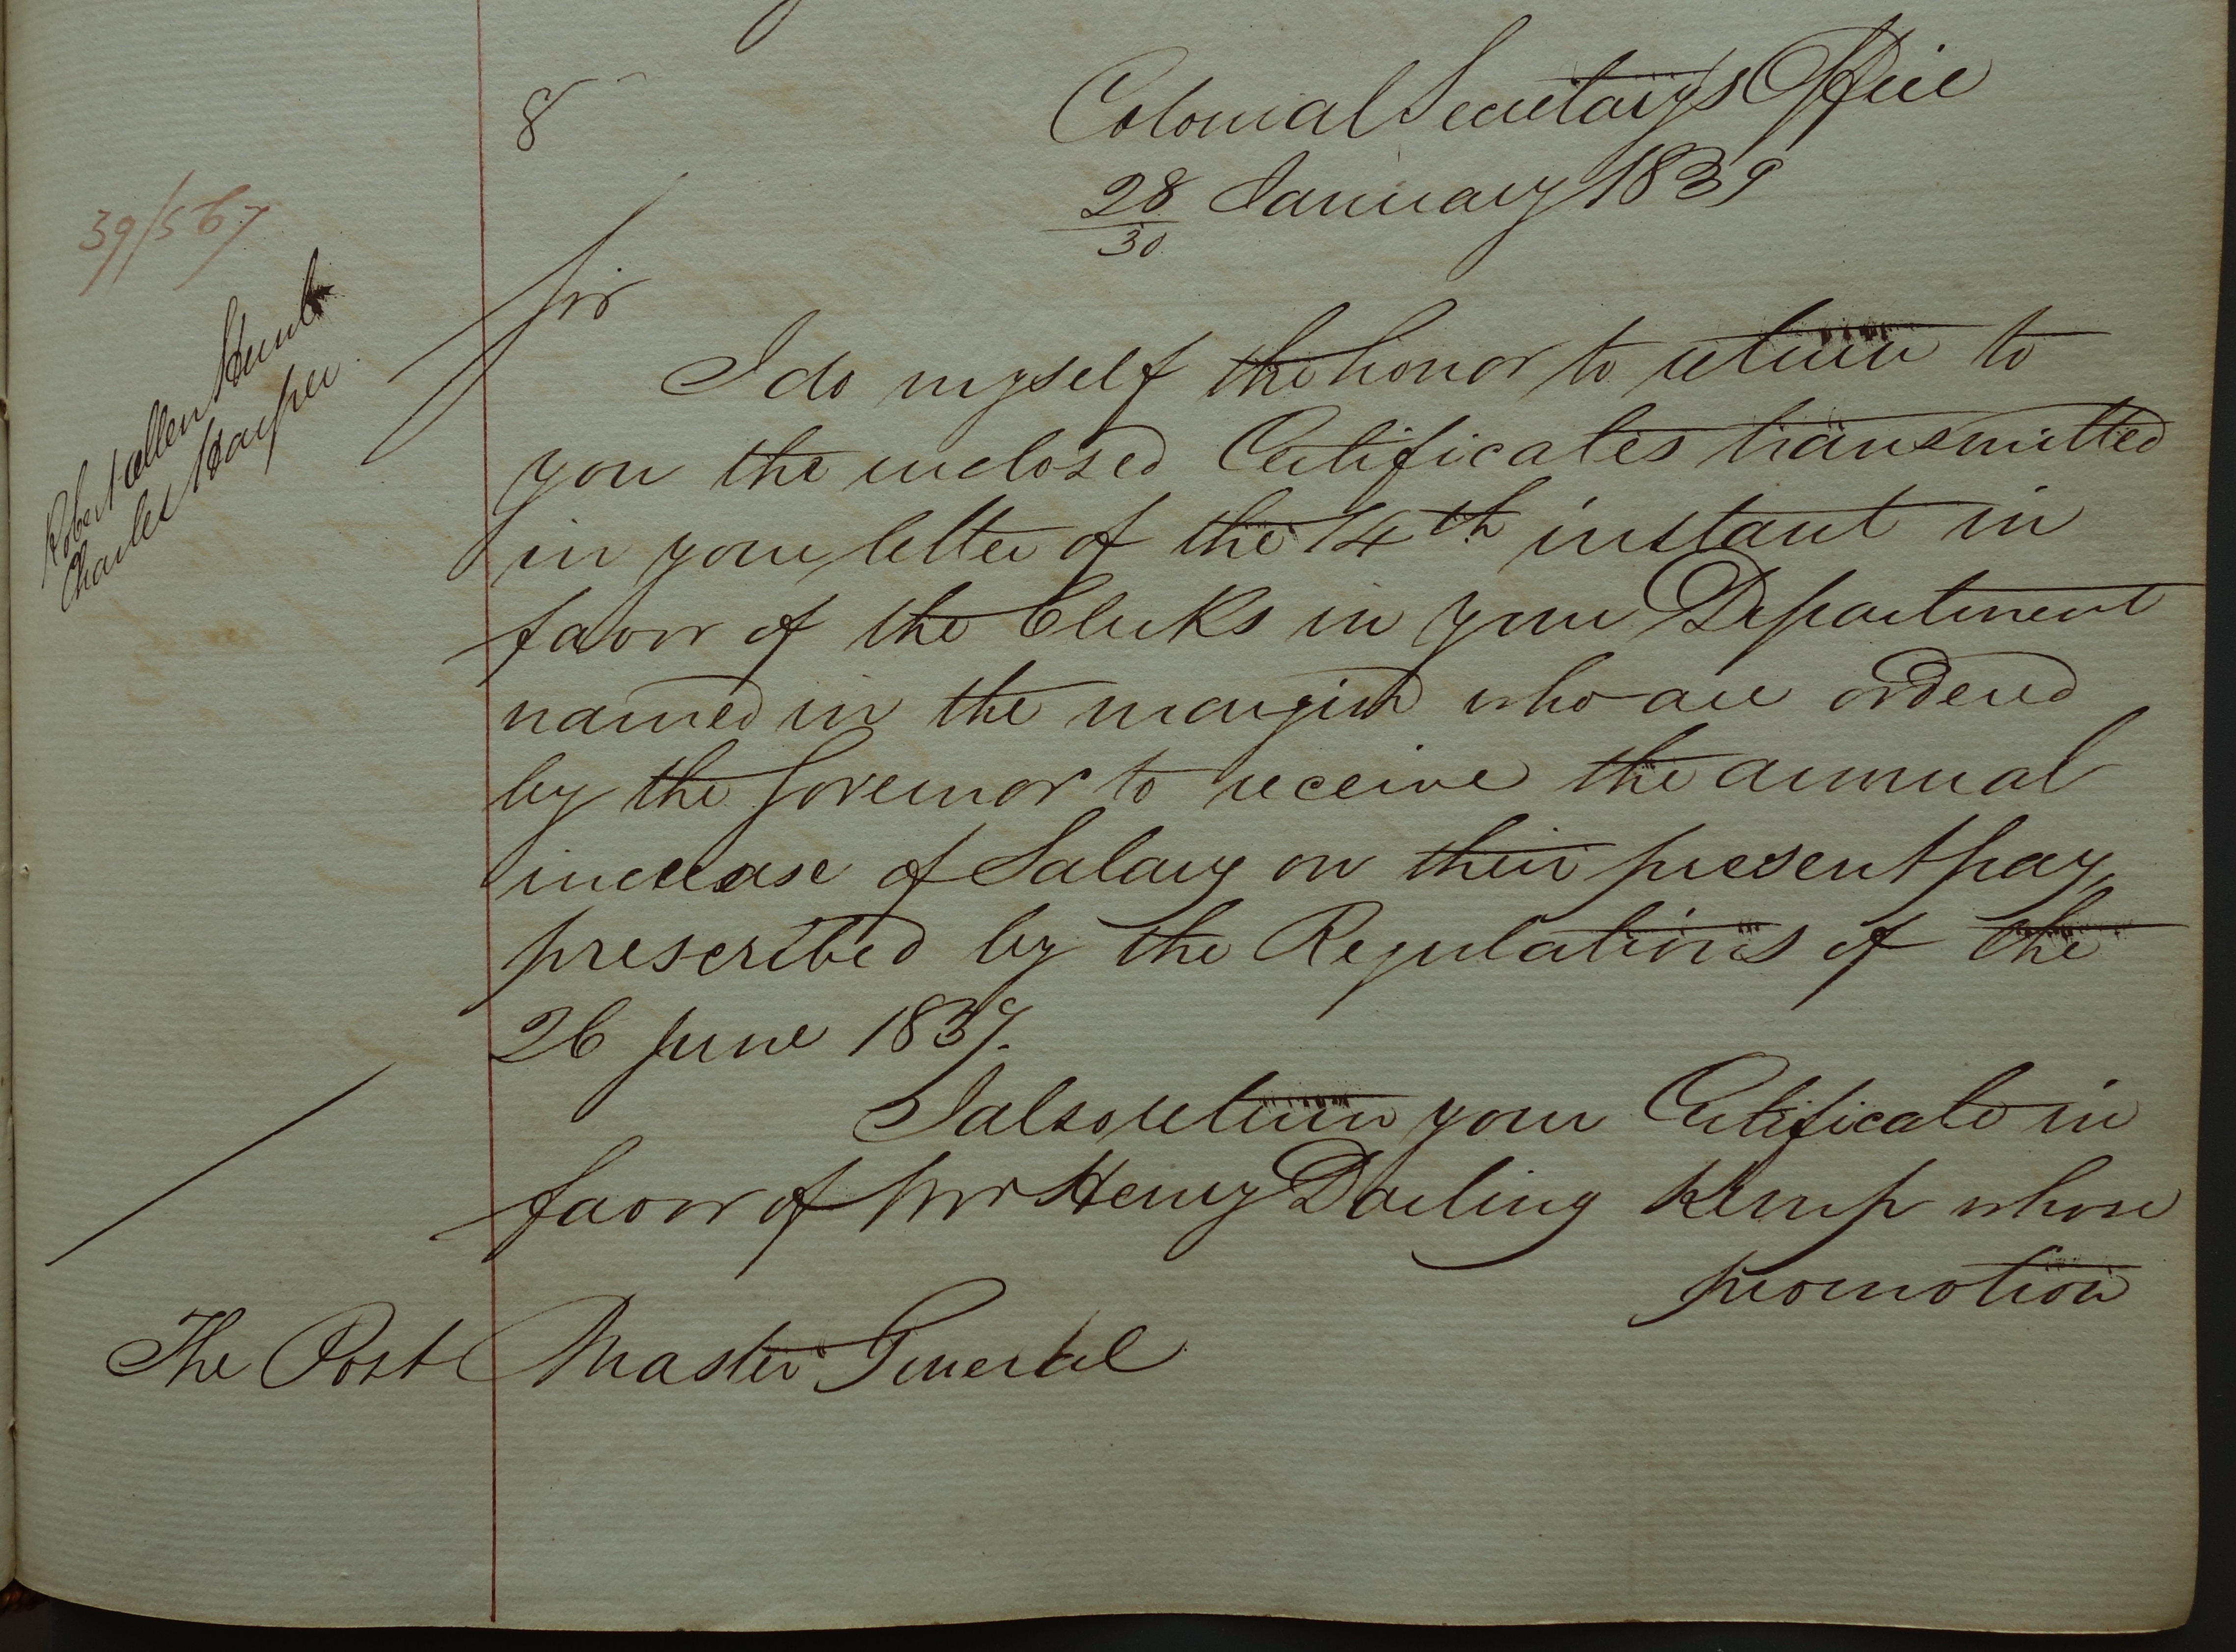 8
Colonial Secretary's Office
28 January 1839
30
39/567
Sir
Robert Allen Hunt
Charles Harper
I do myself the honor to return to
you the inclosed Certificates transmitted
in your letter of the 14th instant in
favor of the Clerks in your Department
named in the margin who are ordered
by the Governor to receive the annual
increase of Salary on their present pay,
prescribed by the Regulations of the
26 June 1837.
I also return your Certificate in
favor of Mr Henry Darling Kemp whose
promotion
The Post Master General